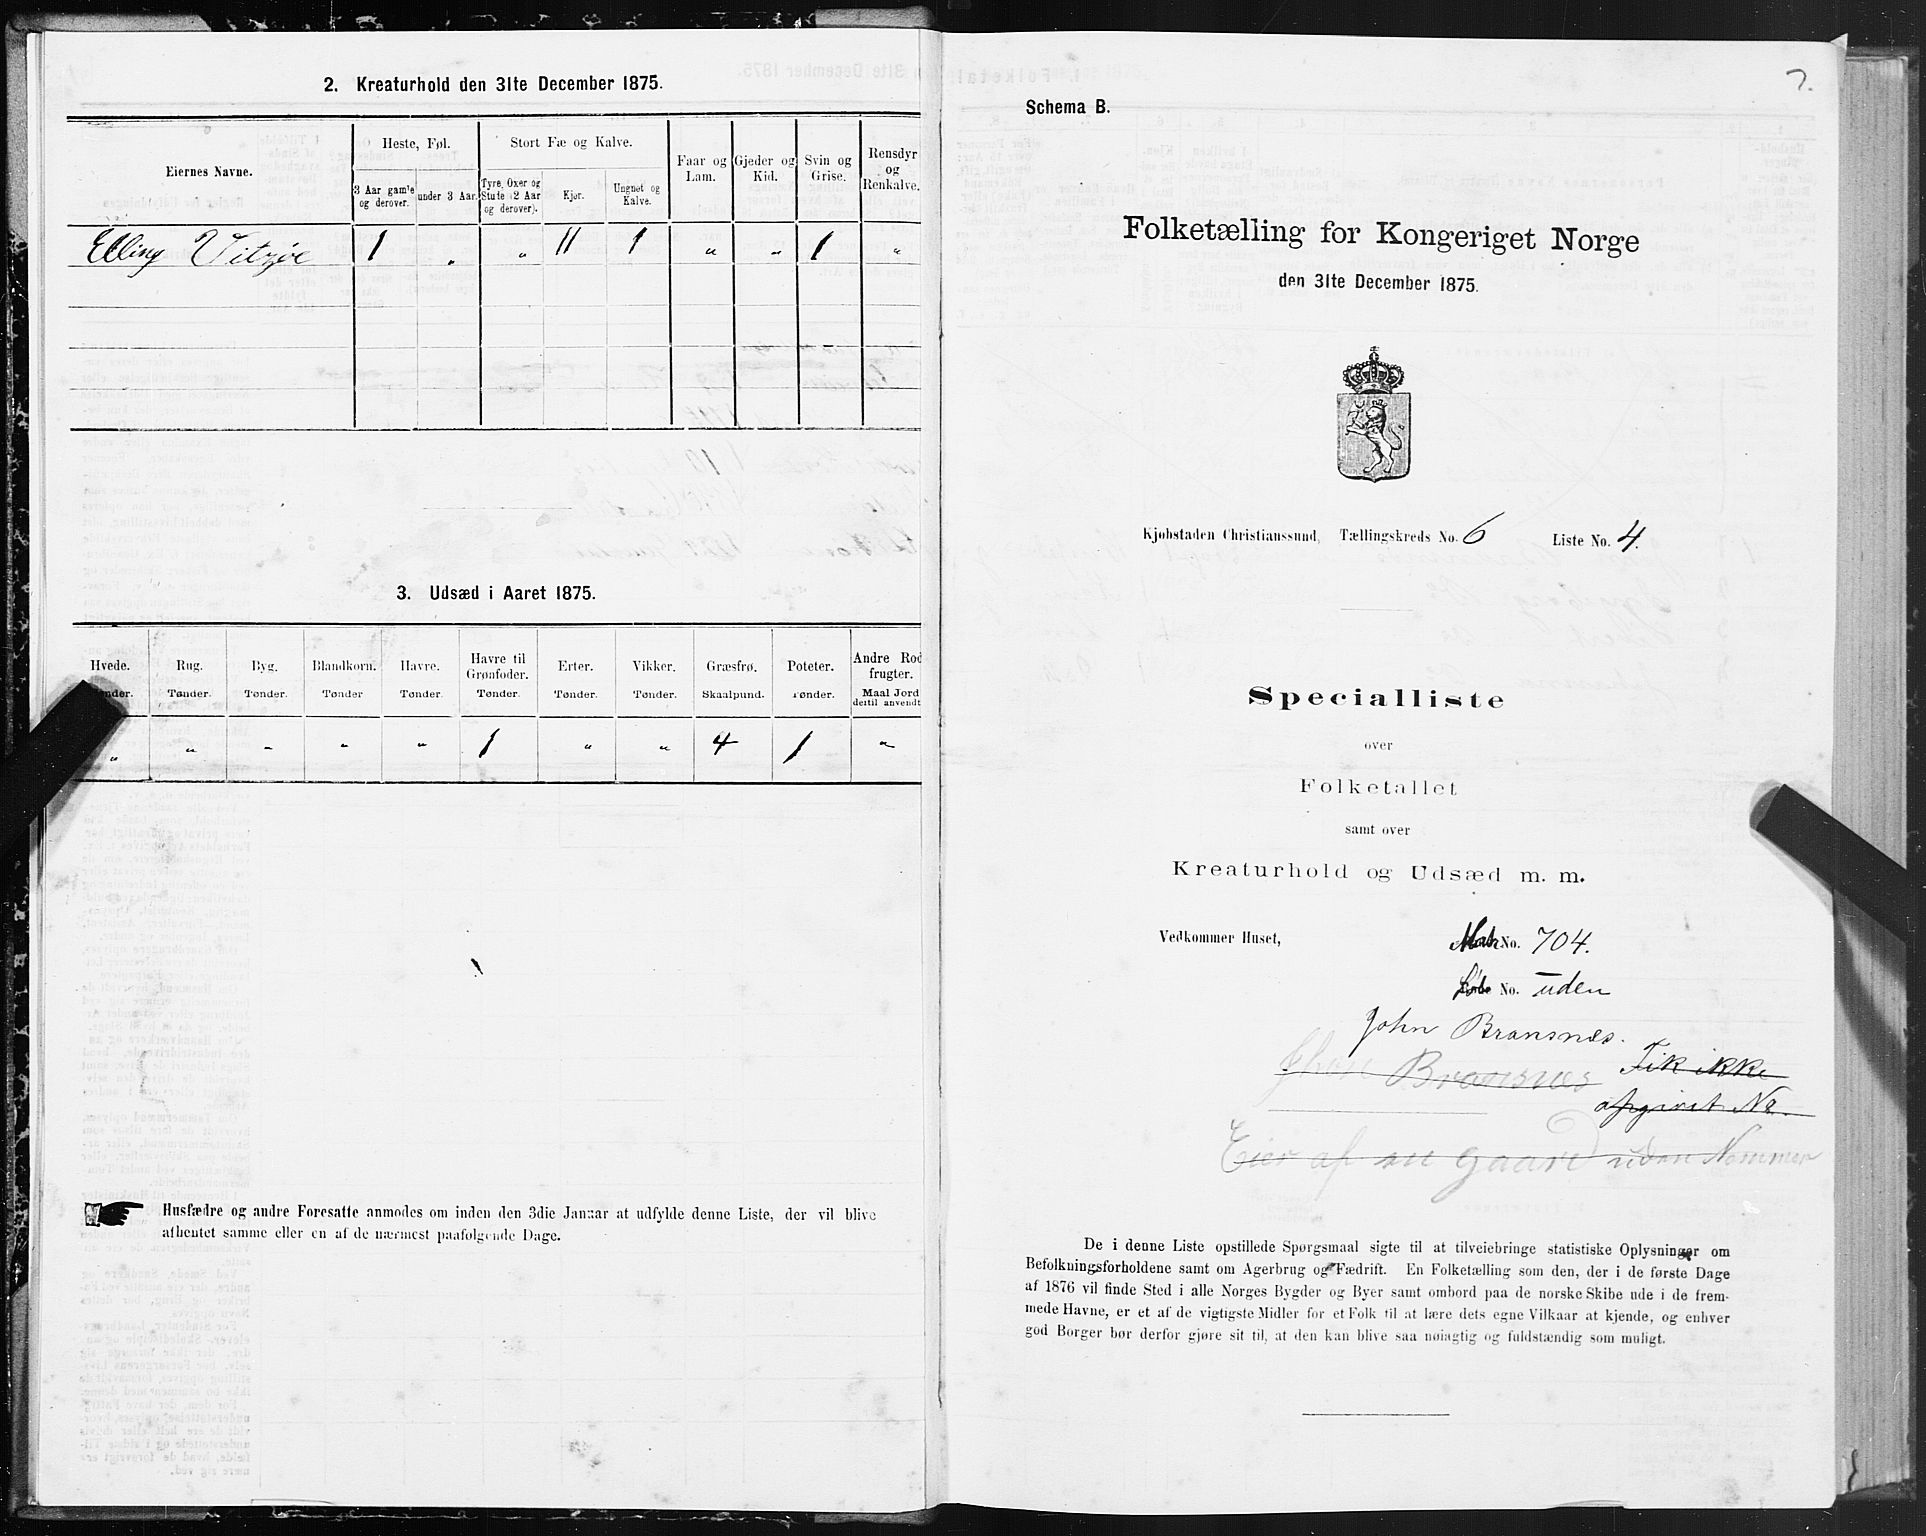 2. Kreaturhold den 31te December 1875.
Eiernes Navne.
Heste, Føl.
3 Aar gamle og derover.
under 3 Aar.
Stort Fæ og Kalve.
Tyre, Oxer og Stute (2 Aar og derover).
Kjør.
Ungnet og Kalve.
Faar og Lam.
Gjeder og Kid.
Svin og Grise.
Rensdyr og Renkalve.
Elling Vitzøe 1 „ „ 11 1 „ „ 1 „
3. Udsæd i Aaret 1875.
Hvede. Rug. Byg. Blandkorn. Havre. Havre til Grønfoder. Erter. Vikker. Græsfrø. Poteter. Andre Rodfrugter.
Tønder. Tønder. Tønder. Tønder Tønder. Tønder. Tønder. Tønder. Skaalpund. Tønder. Maal Jord dertil anvendt.
„ „ „ „ „ 1 „ „ 4 1 „
Husfædre og andre Foresatte anmodes om inden den 3die Januar at udfylde denne Liste, der vil blive
afhentet samme eller en af de nærmest paafølgende Dage.
7.
Schema B.
Folketælling for Kongeriget Norge
den 31te December 1875.
Kjøbstaden Christianssund, Tællingskreds No. 6 Liste No. 4.
Specialliste
over
Folketallet
samt over
Kreaturhold og Udsæd m. m.
Vedkommer Huset, No. 704.
No. uden
John Bransnes.
Bransnes Fik ikke
opgivet No.
Eier af en Gaard uden Nommer
De i denne Liste opstillede Spørgsmaal sigte til at tilveiebringe statistiske Oplysninger om
Befolkningsforholdene samt om Agerbrug og Fædrift. En Folketælling som den, der i de første Dage
af 1876 vil finde Sted i alle Norges Bygder og Byer samt ombord paa de norske Skibe ude i de frem-
mede Havne, er et af de vigtigste Midler for et Folk til at lære dets egne Vilkaar at kjende, og enhver
god Borger bør derfor gjøre sit til, at den kan blive saa nøiagtig og fuldstændig som muligt.